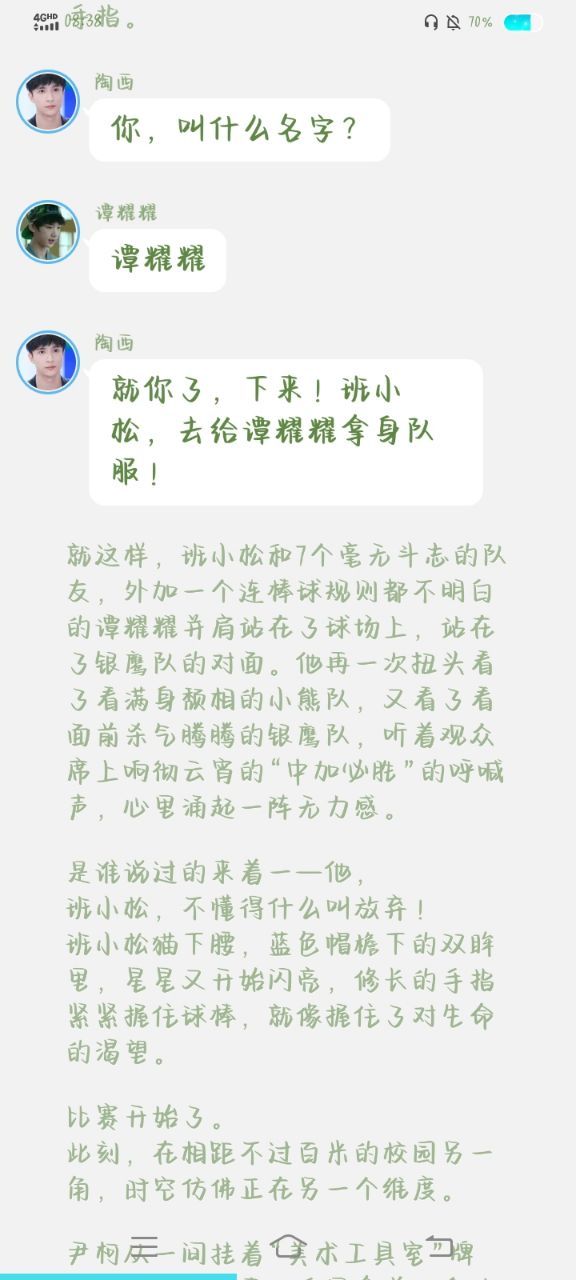 手指。
4GHD
08:38
70%
陶西
你，叫什么名字？
谭耀耀
谭耀耀
陶西
就你了，下来！班小
松，去给谭耀耀拿身队
服！
就这样，班小松和7个毫无斗志的队
友，外加一个连棒球规则都不明白
的谭耀耀并肩站在了球场上，站在
了银鹰队的对面。他再一次扭头看
了看满身颓相的小熊队，又看了看
面前杀气腾腾的银鹰队，听着观众
席上响彻云宵的“中加必胜”的呼喊
声，心里涌起一阵无力感。
是谁说过的来着一一他，
班小松，不懂得什么叫放弃！
班小松猫下腰，蓝色帽檐下的双眸
里，星星又开始闪亮，修长的手指
紧紧握住球棒，就像握住了对生命
的渴望。
比赛开始了。
此刻，在相距不过百米的校园另一
角，时空仿佛正在另一个维度。
尹柯从一间挂着“美术工具室”牌